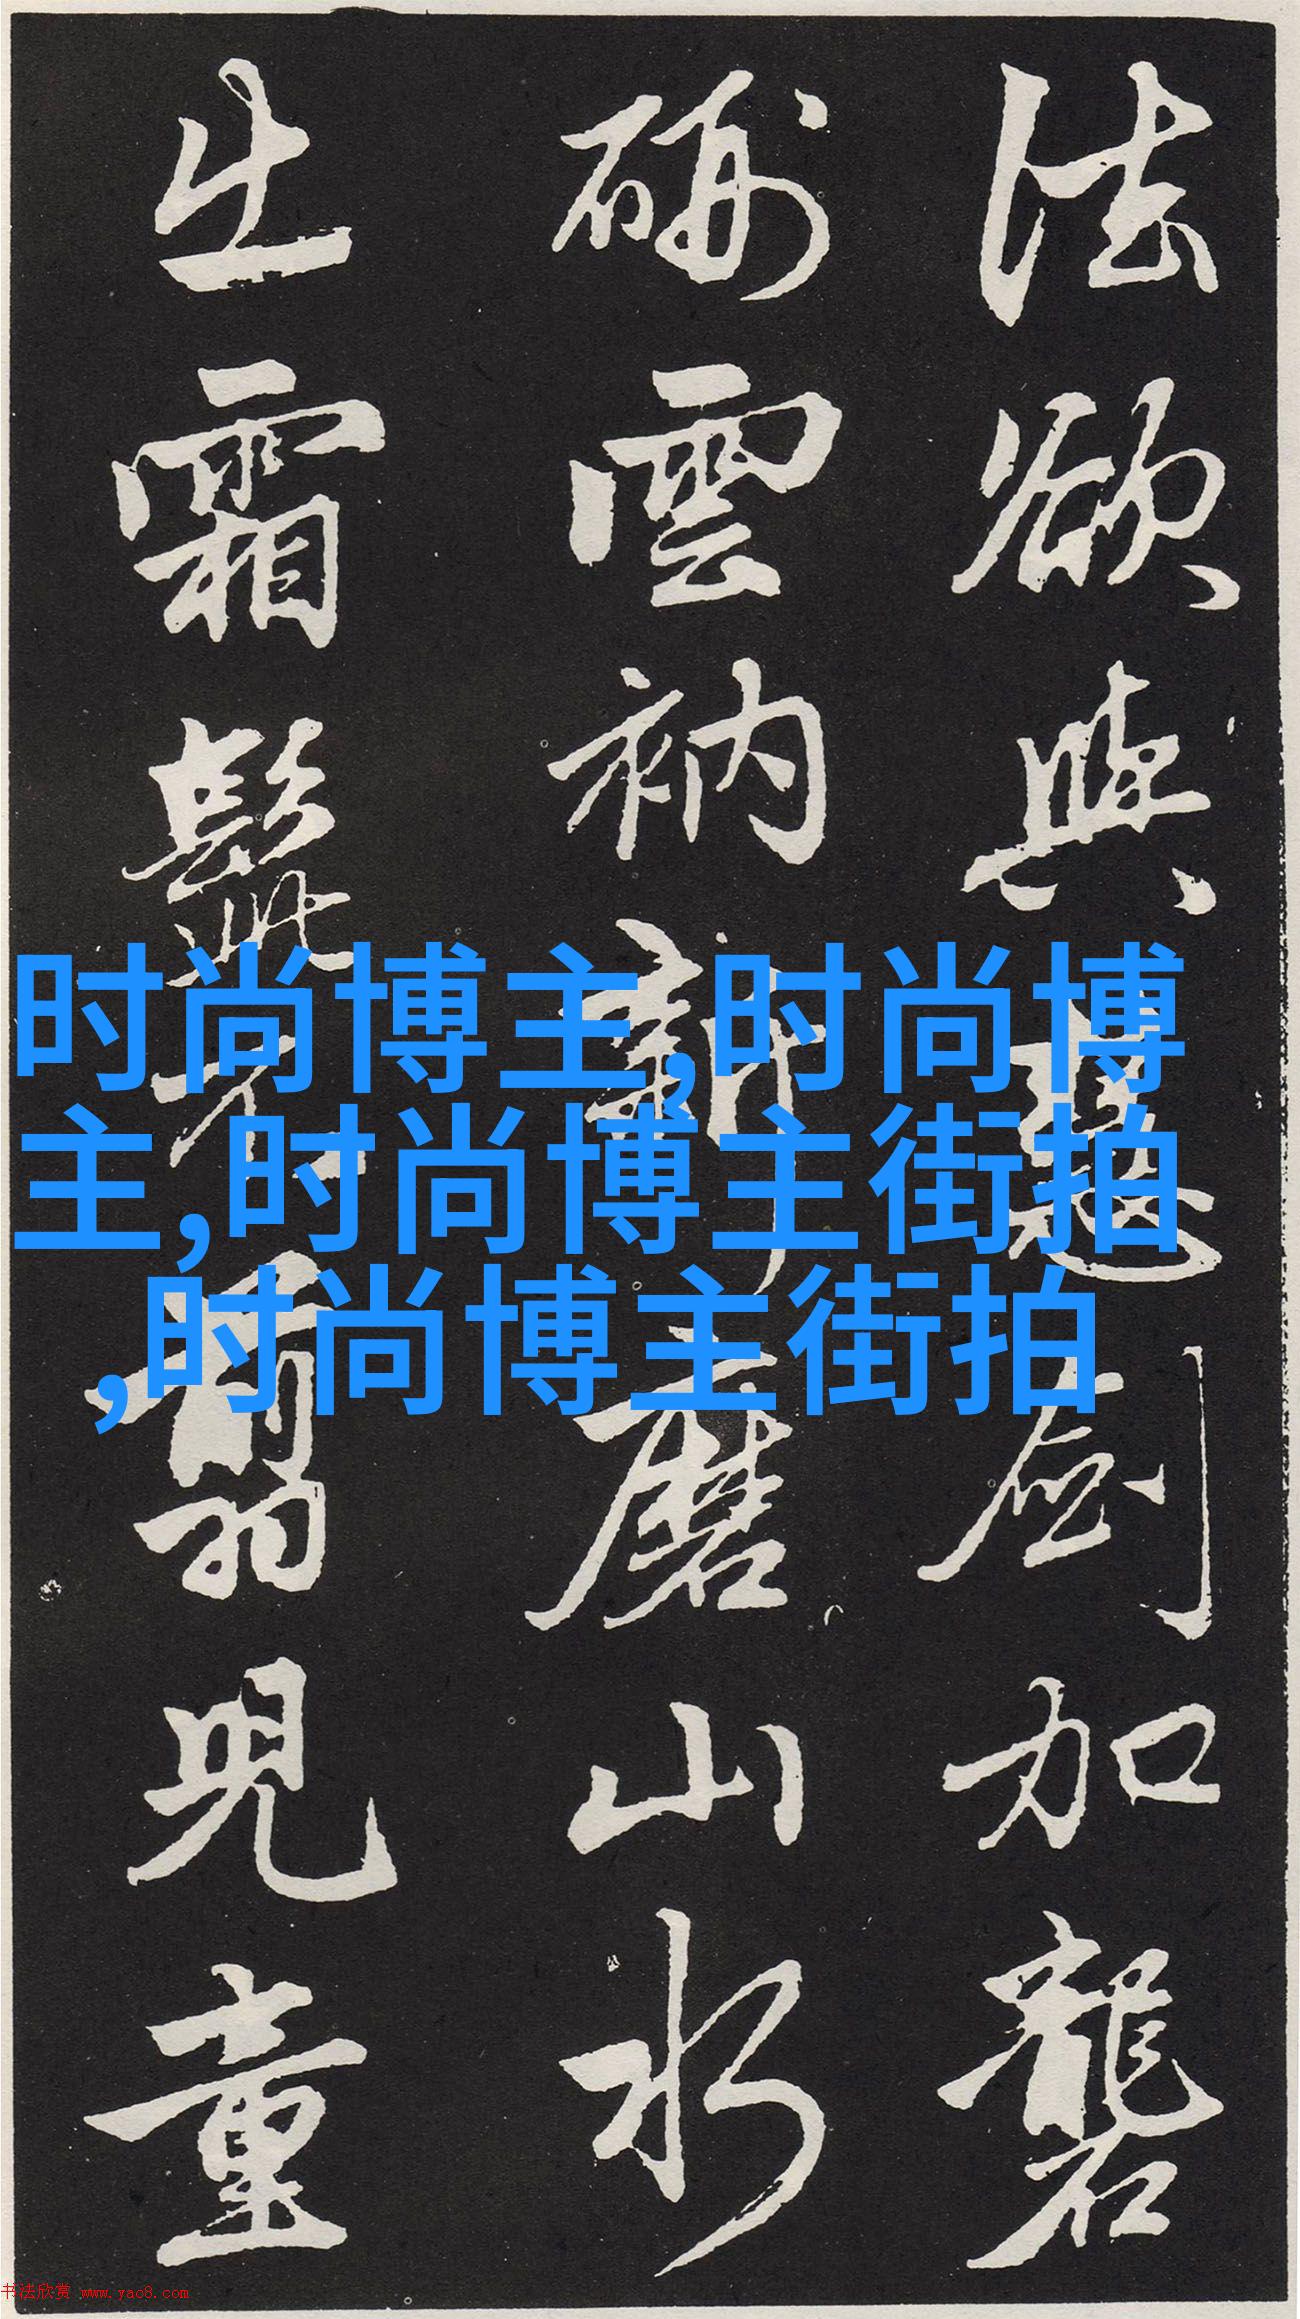 法欲與慧劍加礱
硎雲衲新磨山水
出霜髭不翦兒童
时尚博主,时尚博
主,时尚博主街拍
,时尚博主街拍
书法欣赏 www.yac8.com